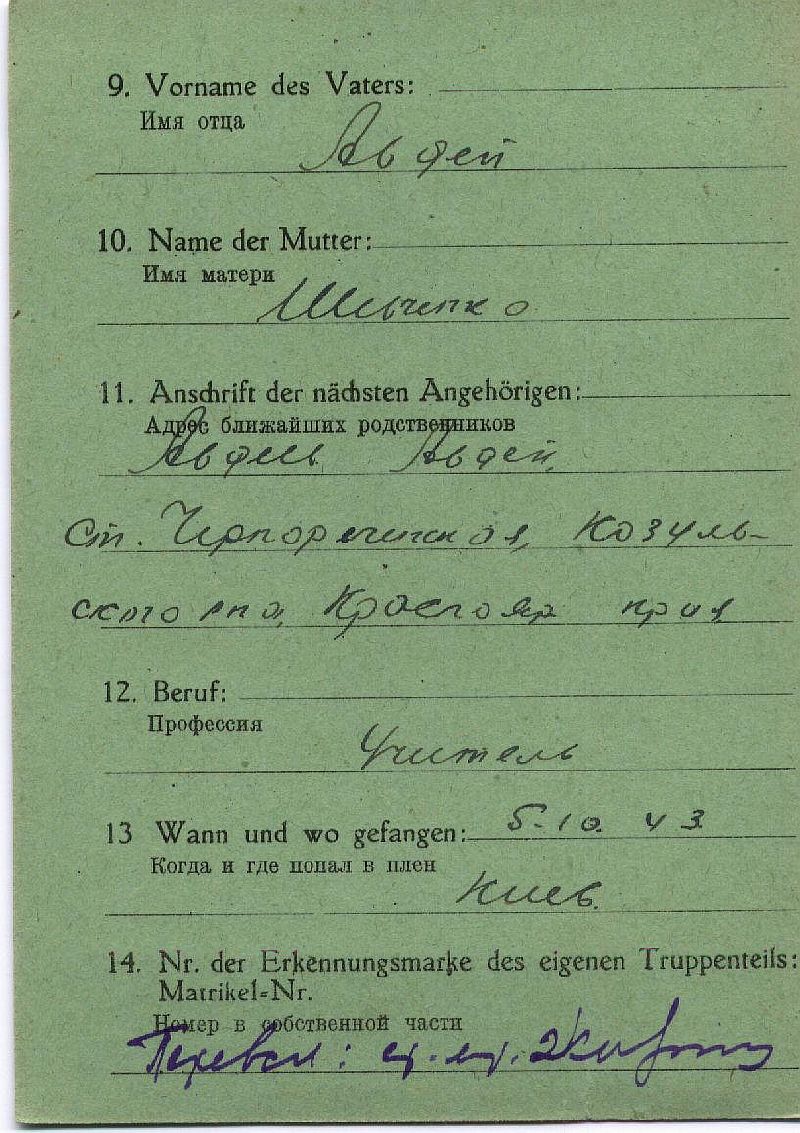 9. Vorname des Vaters:
Имя отца
Авдей
10. Name der Mutter:
Имя матери
Шевченко
11. Anschrift der nächsten Angehörigen:
Адрес ближайших родственников
Авдей
ст. Чернореченская, Козуль-
ского р-на, Краснояр края
12. Beruf:
Профессия
Учитель
13 Wann und wo gefangen: 5.10.43
Когда и где попал в плен
Киев.
14. Nr. der Erkennungsmarke des eigenen Truppenteils:
Matrikel=Nr.
Номер в собственной части
Перевел: